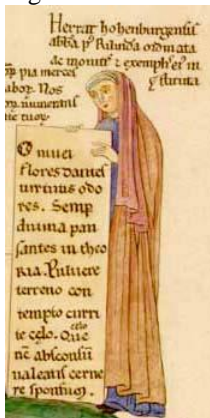 Herrat hohenburgensis
abba p' Rilinda ordinata
ac monitis ⁊ exemplis ei' in
stituta
pia merces
labor. Nos
munerans
O nivei
flores dantes
virtutis odo
res. Semp
divina pau
santes in theo
ria. Pulvere
terreno con
tempto curri
te celo. Que
celo
ne absconsū
valeatis cerne
re sponsum.